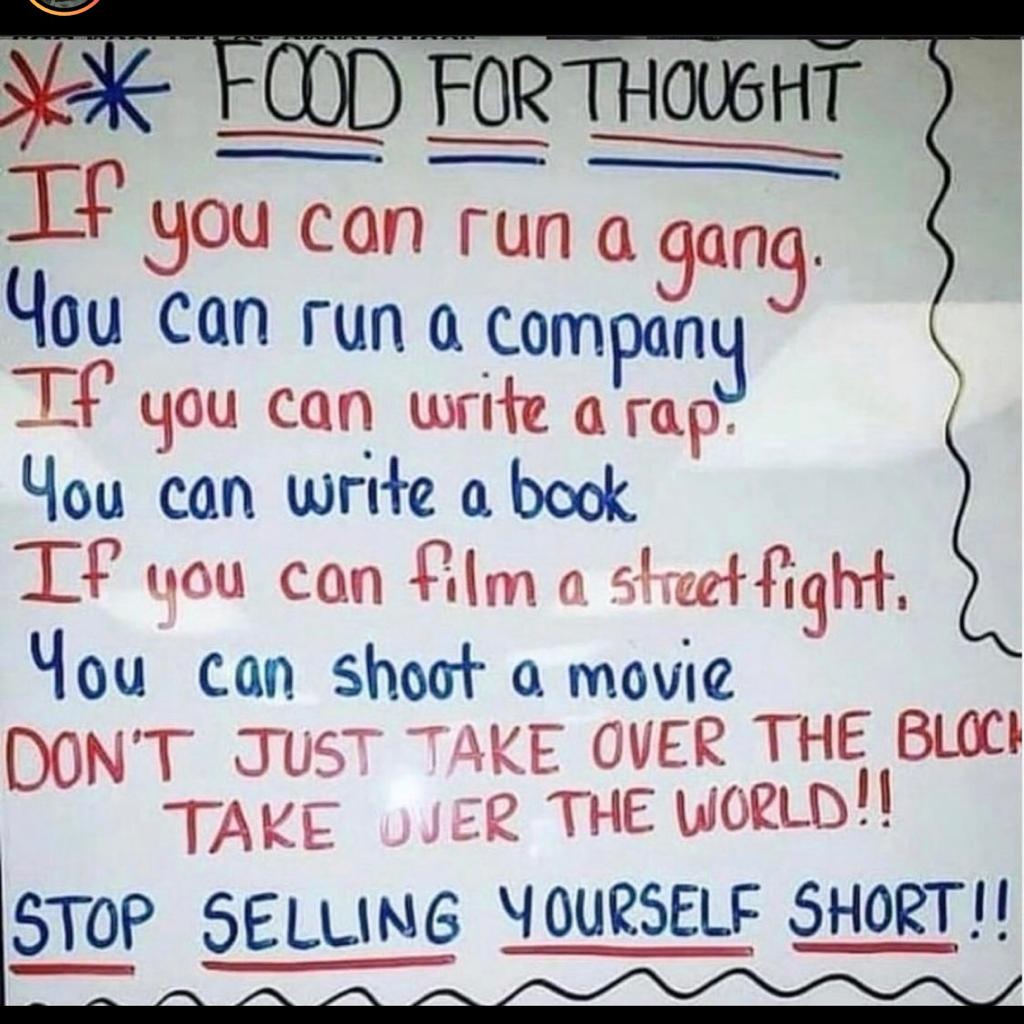 FOOD FOR THOUGHT
If you can run a gang.
You can run a company
If you can write a rap.
You can write a book
If you can film a street fight.
You can shoot a movie
DON'T JUST TAKE OVER THE BLOCK
TAKE OVER THE WORLD!!
STOP SELLING YOURSELF SHORT!!